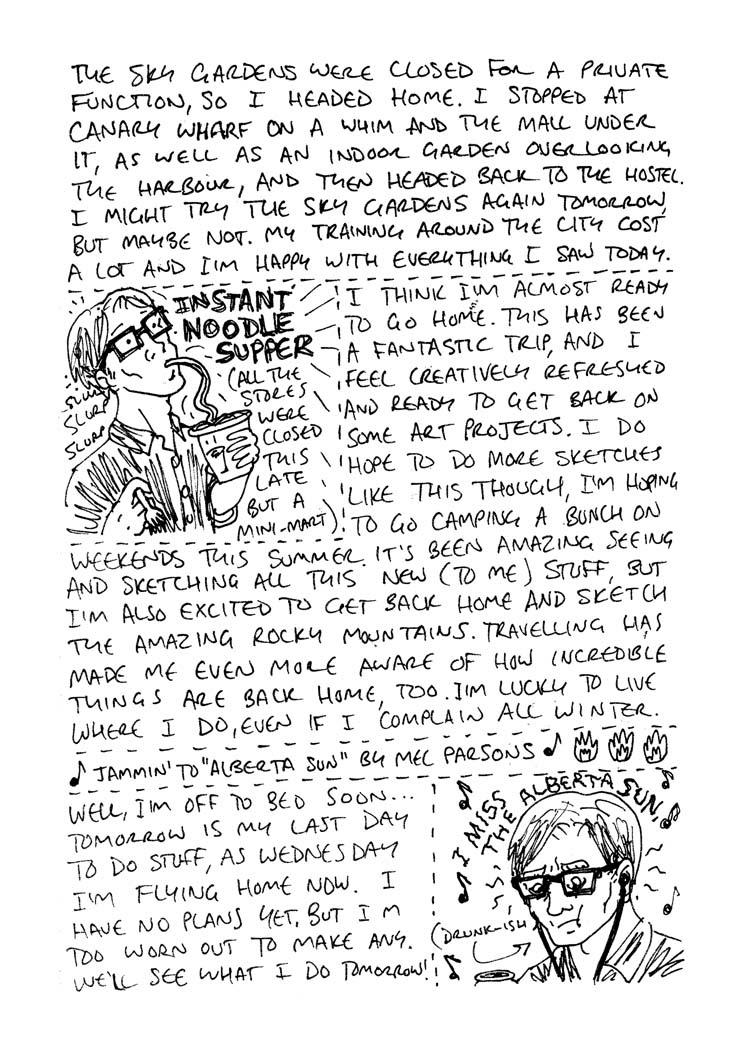 THE SKY GARDENS WERE CLOSED FOR A PRIVATE
FUNCTION, SO I HEADED HOME. I STOPPED AT
CANARY WHARF ON A WHIM AND THE MALL UNDER
IT, AS WELL AS AN INDOOR GARDEN OVERLOOKING
THE HARBOUR, AND THEN HEADED BACK TO THE HOSTEL.
I MIGHT TRY THE SKY GARDENS AGAIN TOMORROW,
BUT MAYBE NOT. MY TRAINING AROUND THE CITY COST
A LOT AND I'M HAPPY WITH EVERYTHING I SAW TODAY.
INSTANT
NOODLE
SUPPER
(ALL THE
STORES
WERE
CLOSED
THIS
LATE
BUT A
MINI-MART)
SLURP
SLURP
SLURP
I THINK I'M ALMOST READY
TO GO HOME. THIS HAS BEEN
A FANTASTIC TRIP, AND I
FEEL CREATIVELY REFRESHED
AND READY TO GET BACK ON
SOME ART PROJECTS. I DO
HOPE TO DO MORE SKETCHES
LIKE THIS THOUGH, I'M HOPING
TO GO CAMPING A BUNCH ON
WEEKENDS THIS SUMMER. IT'S BEEN AMAZING SEEING
AND SKETCHING ALL THIS NEW (TO ME) STUFF, BUT
I'M ALSO EXCITED TO GET BACK HOME AND SKETCH
THE AMAZING ROCKY MOUNTAINS. TRAVELLING HAS
MADE ME EVEN MORE AWARE OF HOW INCREDIBLE
THINGS ARE BACK HOME, TOO. I'M LUCKY TO LIVE
WHERE I DO, EVEN IF I COMPLAIN ALL WINTER.
♪ JAMMIN' TO "ALBERTA SUN" BY MEL PARSONS ♪
WELL, I'M OFF TO BED SOON...
TOMORROW IS MY LAST DAY
TO DO STUFF, AS WEDNESDAY
I'M FLYING HOME NOW. I
HAVE NO PLANS YET, BUT I'M
TOO WORN OUT TO MAKE ANY.
WE'LL SEE WHAT I DO TOMORROW!
I MISS
THE ALBERTA SUN,
(DRUNK-ISH)